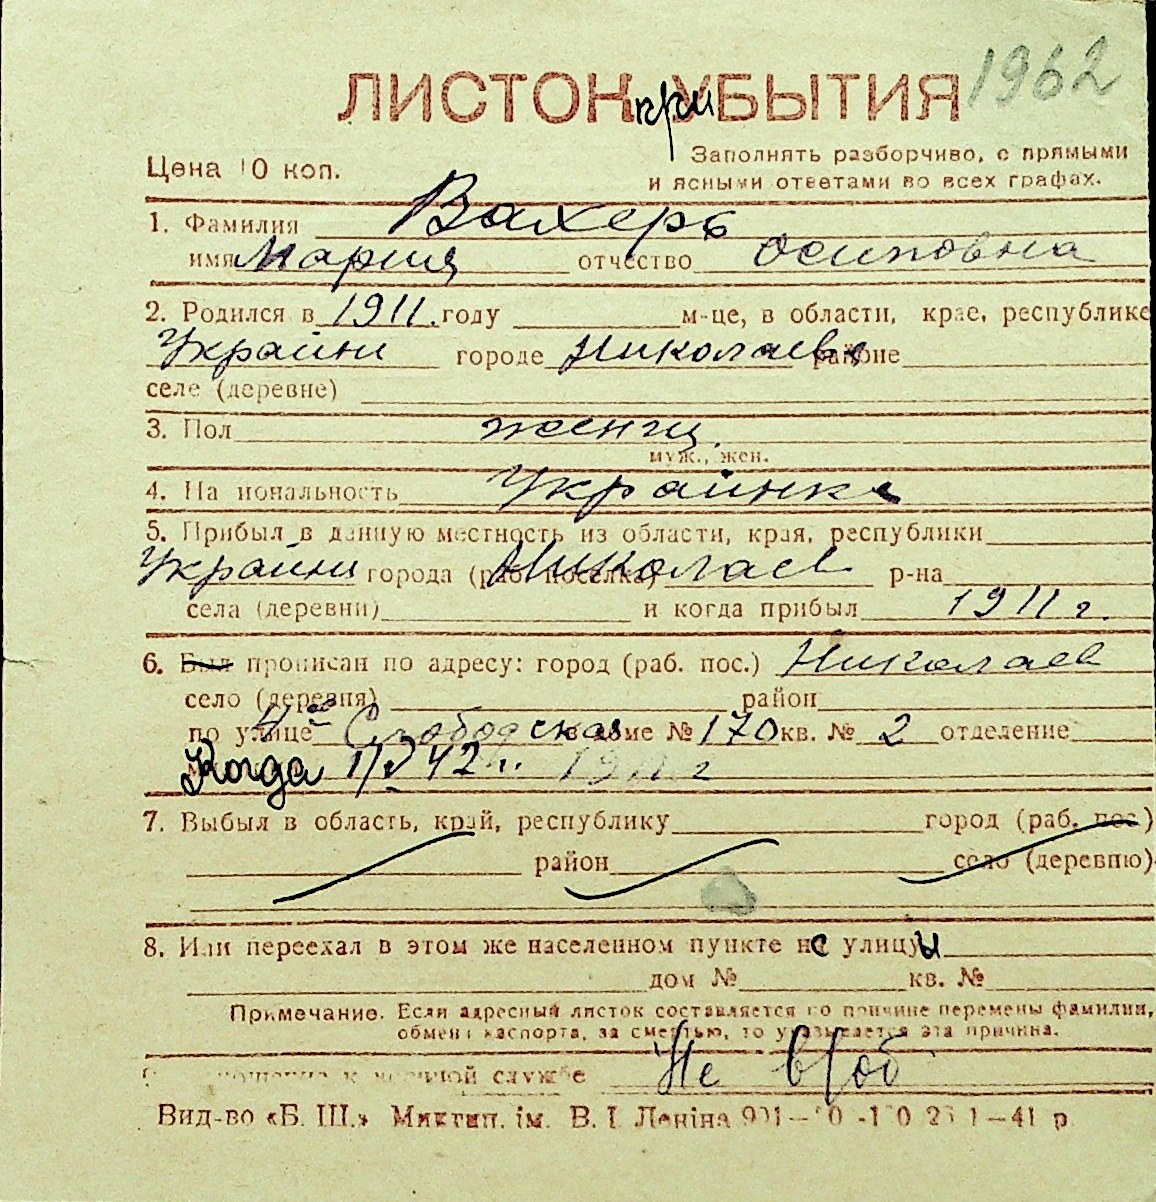 1962
ЛИСТОК при УБЫТИЯ
Цена 10 коп.
Заполнять разборчиво, с прямыми
и ясными ответами во всех графах.
1. Фамилия Вахерь
имя Мария отчество Осиповна
2. Родился в 1911. году м-це, в области, крае, республике
Украини городе Николаеве районе
селе (деревне)
3. Пол женщ.
муж., жен.
4. На иональность Украинка
5. Прибыл в данную местность из области, края, республики
Украини города (раб. поселка) Николаев р-на
села (деревни) и когда прибыл 1911 г.
6. Был прописан по адресу: город (раб. пос.) Николаев
село (деревня) район
по улице 4ая Слободская в доме № 170 кв. № 2 отделение
Когда 42 г.
7. Выбыл в область, край, республику город (раб. пос.)
район село (деревню)
8. Или переехал в этом же населенном пункте нс улицуы
дом № кв. №
Примечание. Если адресный листок составляется по причине перемены фамилии,
обмена паспорта, за смертью, то указывается эта причина.
службе Не в/об
Вид-во «Б. Ш.» Миктип. ім. В. І Леніна